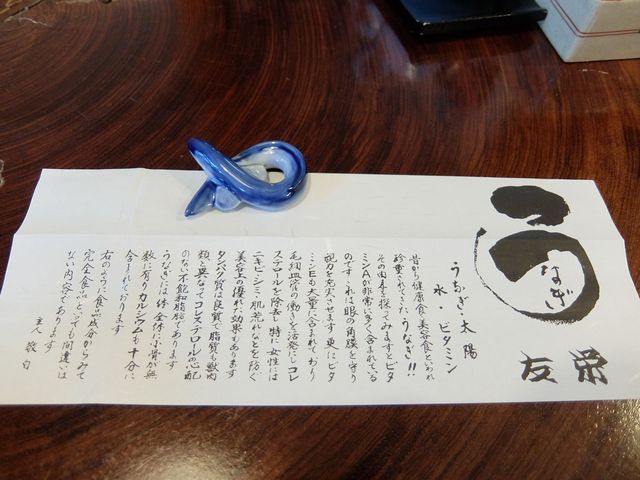 うなぎ
友栄
うなぎ・太陽
水・ビタミン
昔から健康食・美容食といわれ
珍重されてきたうなぎ!!
その内容を探てみますとビタ
ミンAが非常に多く含まれている
のです これは眼の角膜を守り
視力を充実させます 更にビタ
ミンEも大量に含まれており
毛細血管の働きを活発にしコレ
ステロールを除去し 特に女性には
ニキビ・シミ・肌荒れなどを防ぐ
美容上の優れた効果もあります
タンパク質は良質で脂質も獣肉
類と異なってコレステロールの心配
のない不飽和脂肪であります
うなぎには一体全体に小骨が無
数に有りカルシウムも十分に
含まれております
右のように食品成分からみて
完全食品といっても間違いは
ない内容であります
主人 敬白